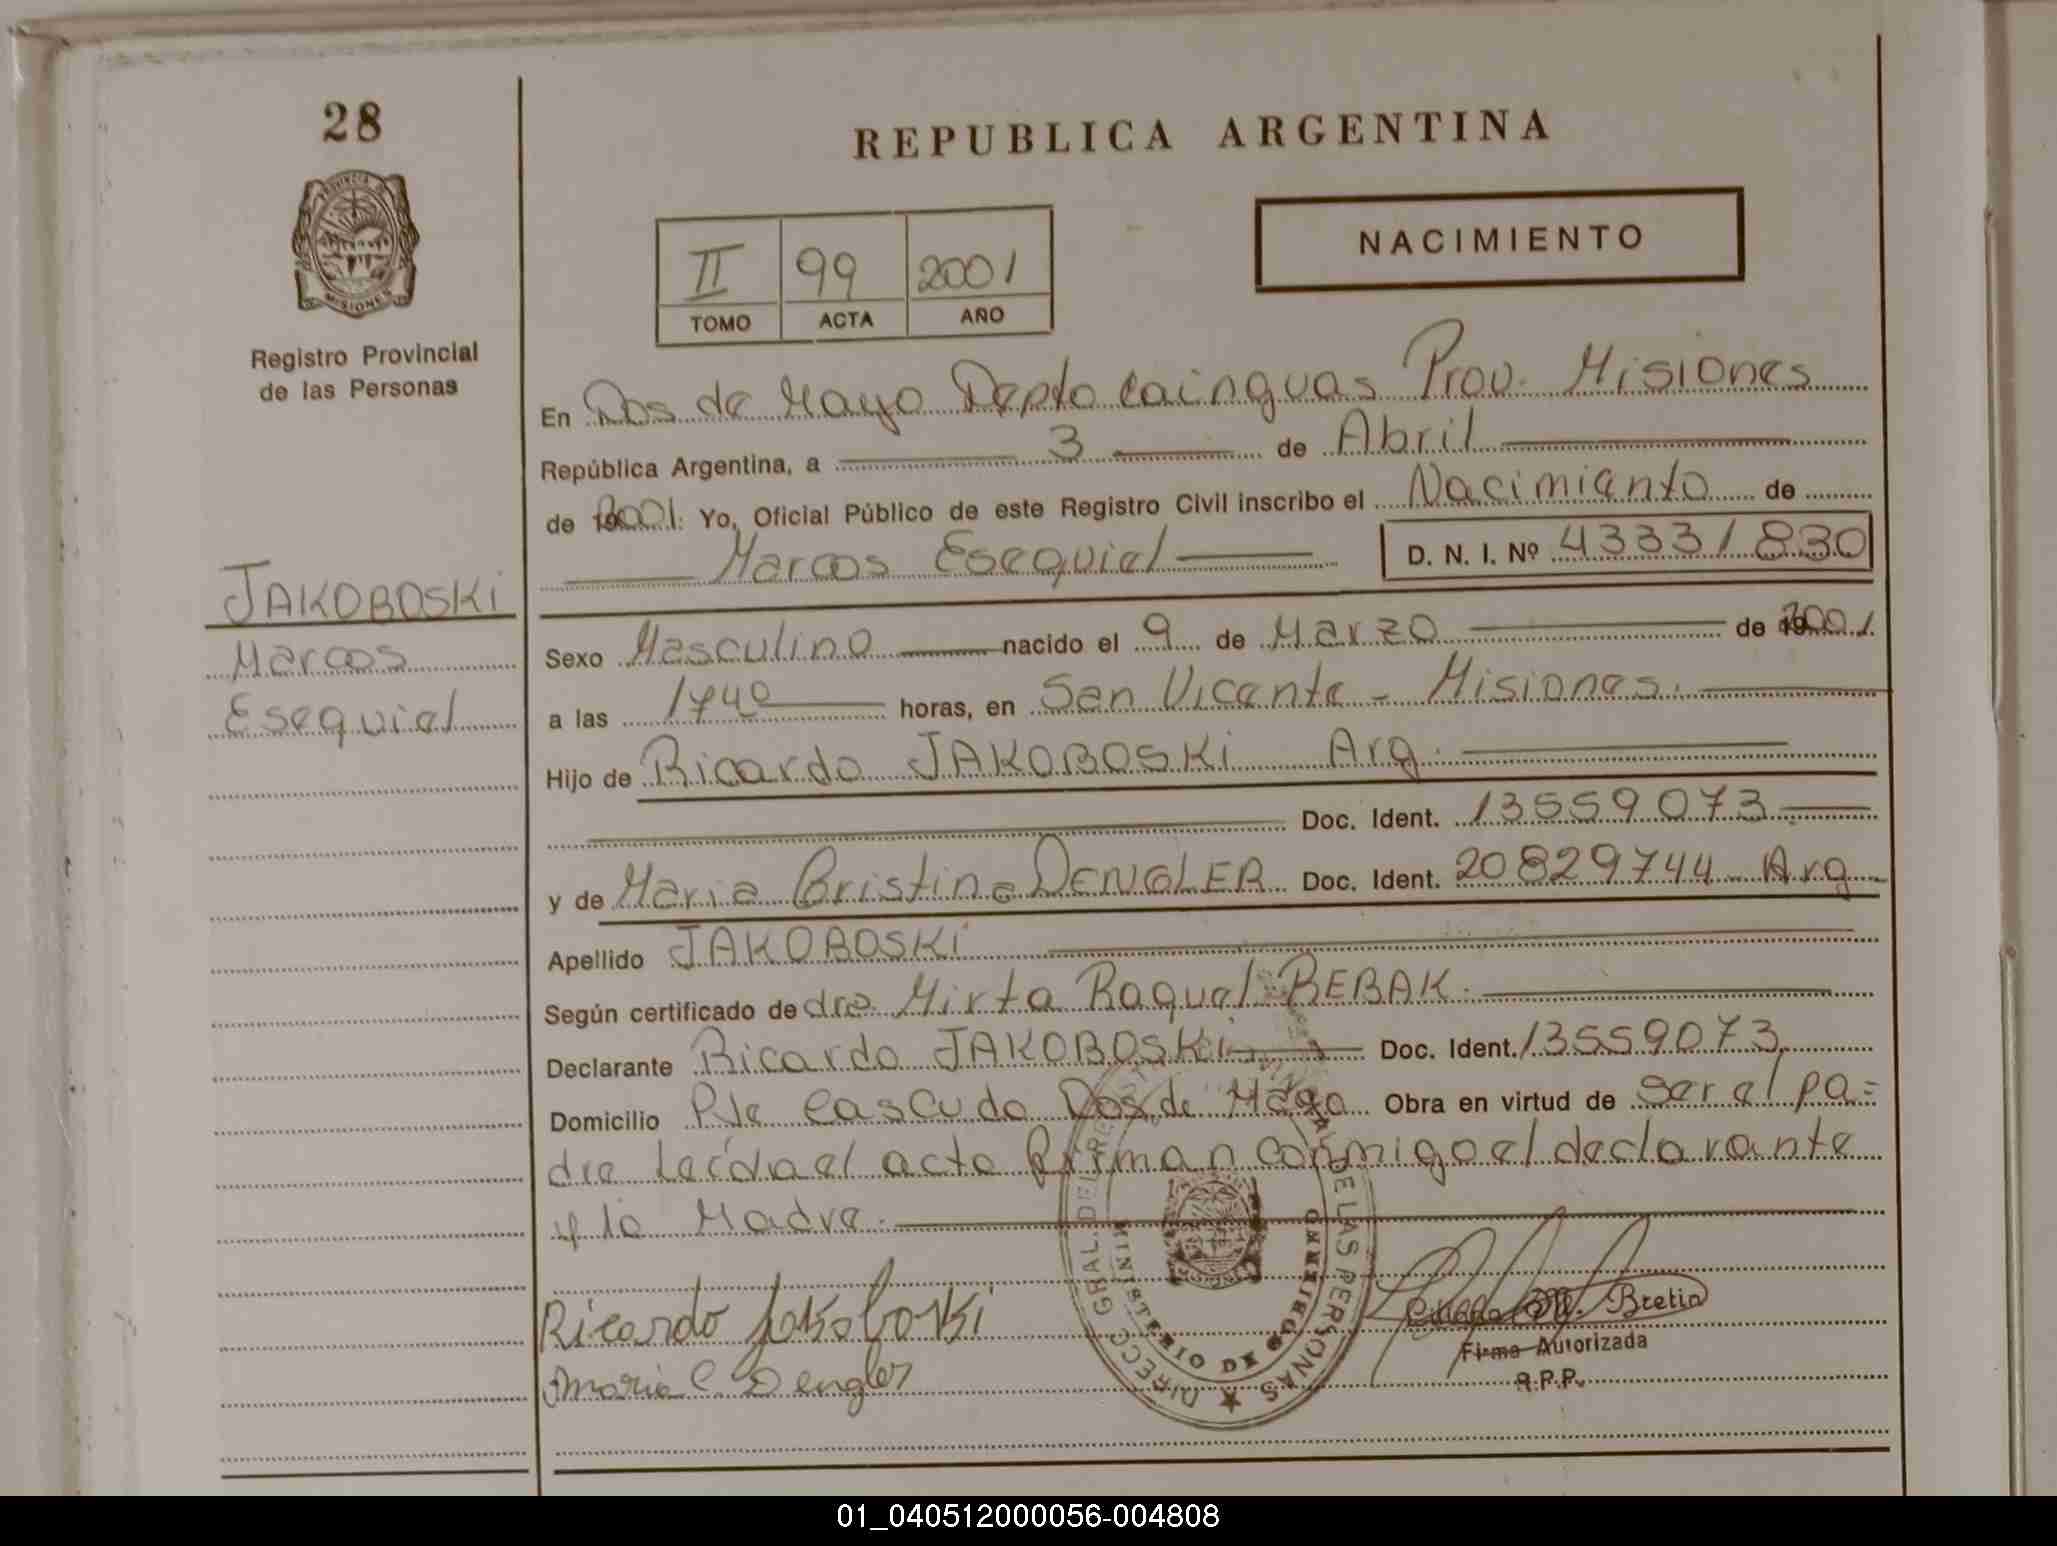 28
PROVINCIA DE
MISIONES
Registro Provincial
de las Personas
JAKOBOSKi
Marcos
Esequiel
REPUBLICA ARGENTINA
NACIMIENTO
II 99 2001
TOMO ACTA AÑO
En Dos de Mayo Depto Cainguas Prov. Misiones
República Argentina, a 3 de Abril
de 2001. Yo, Oficial Público de este Registro Civil inscribo el Nacimiento de
Marcos Esequiel D. N. I. Nº 43331830
Sexo Masculino nacido el 9 de Marzo de 2001.
a las 1740 horas, en San Vicente - Misiones.
Hijo de Ricardo JAKOBOSKi Arg.
Doc. Ident. 13559073
y de Maria Cristina DENGLER Doc. Ident. 20829744 Arg
Apellido JAKOBOSKi
Según certificado de dra. Mirta Raquel BEBAK.
Declarante Ricardo JAKOBOSKi Doc. Ident. 13559073
Domicilio Pje Cascudo Dos de Mayo Obra en virtud de ser el pa=
dre Leída el acta firman conmigo el declarante
y la Madre.
Ricardo Jakoboski
Maria C. Dengler
DIRECC GRAL. DEL REGISTRO DE LAS PERSONAS
MINISTERIO DE GOBIERNO
M. Bretin
Firma Autorizada
R.P.P.
01_040512000056-004808